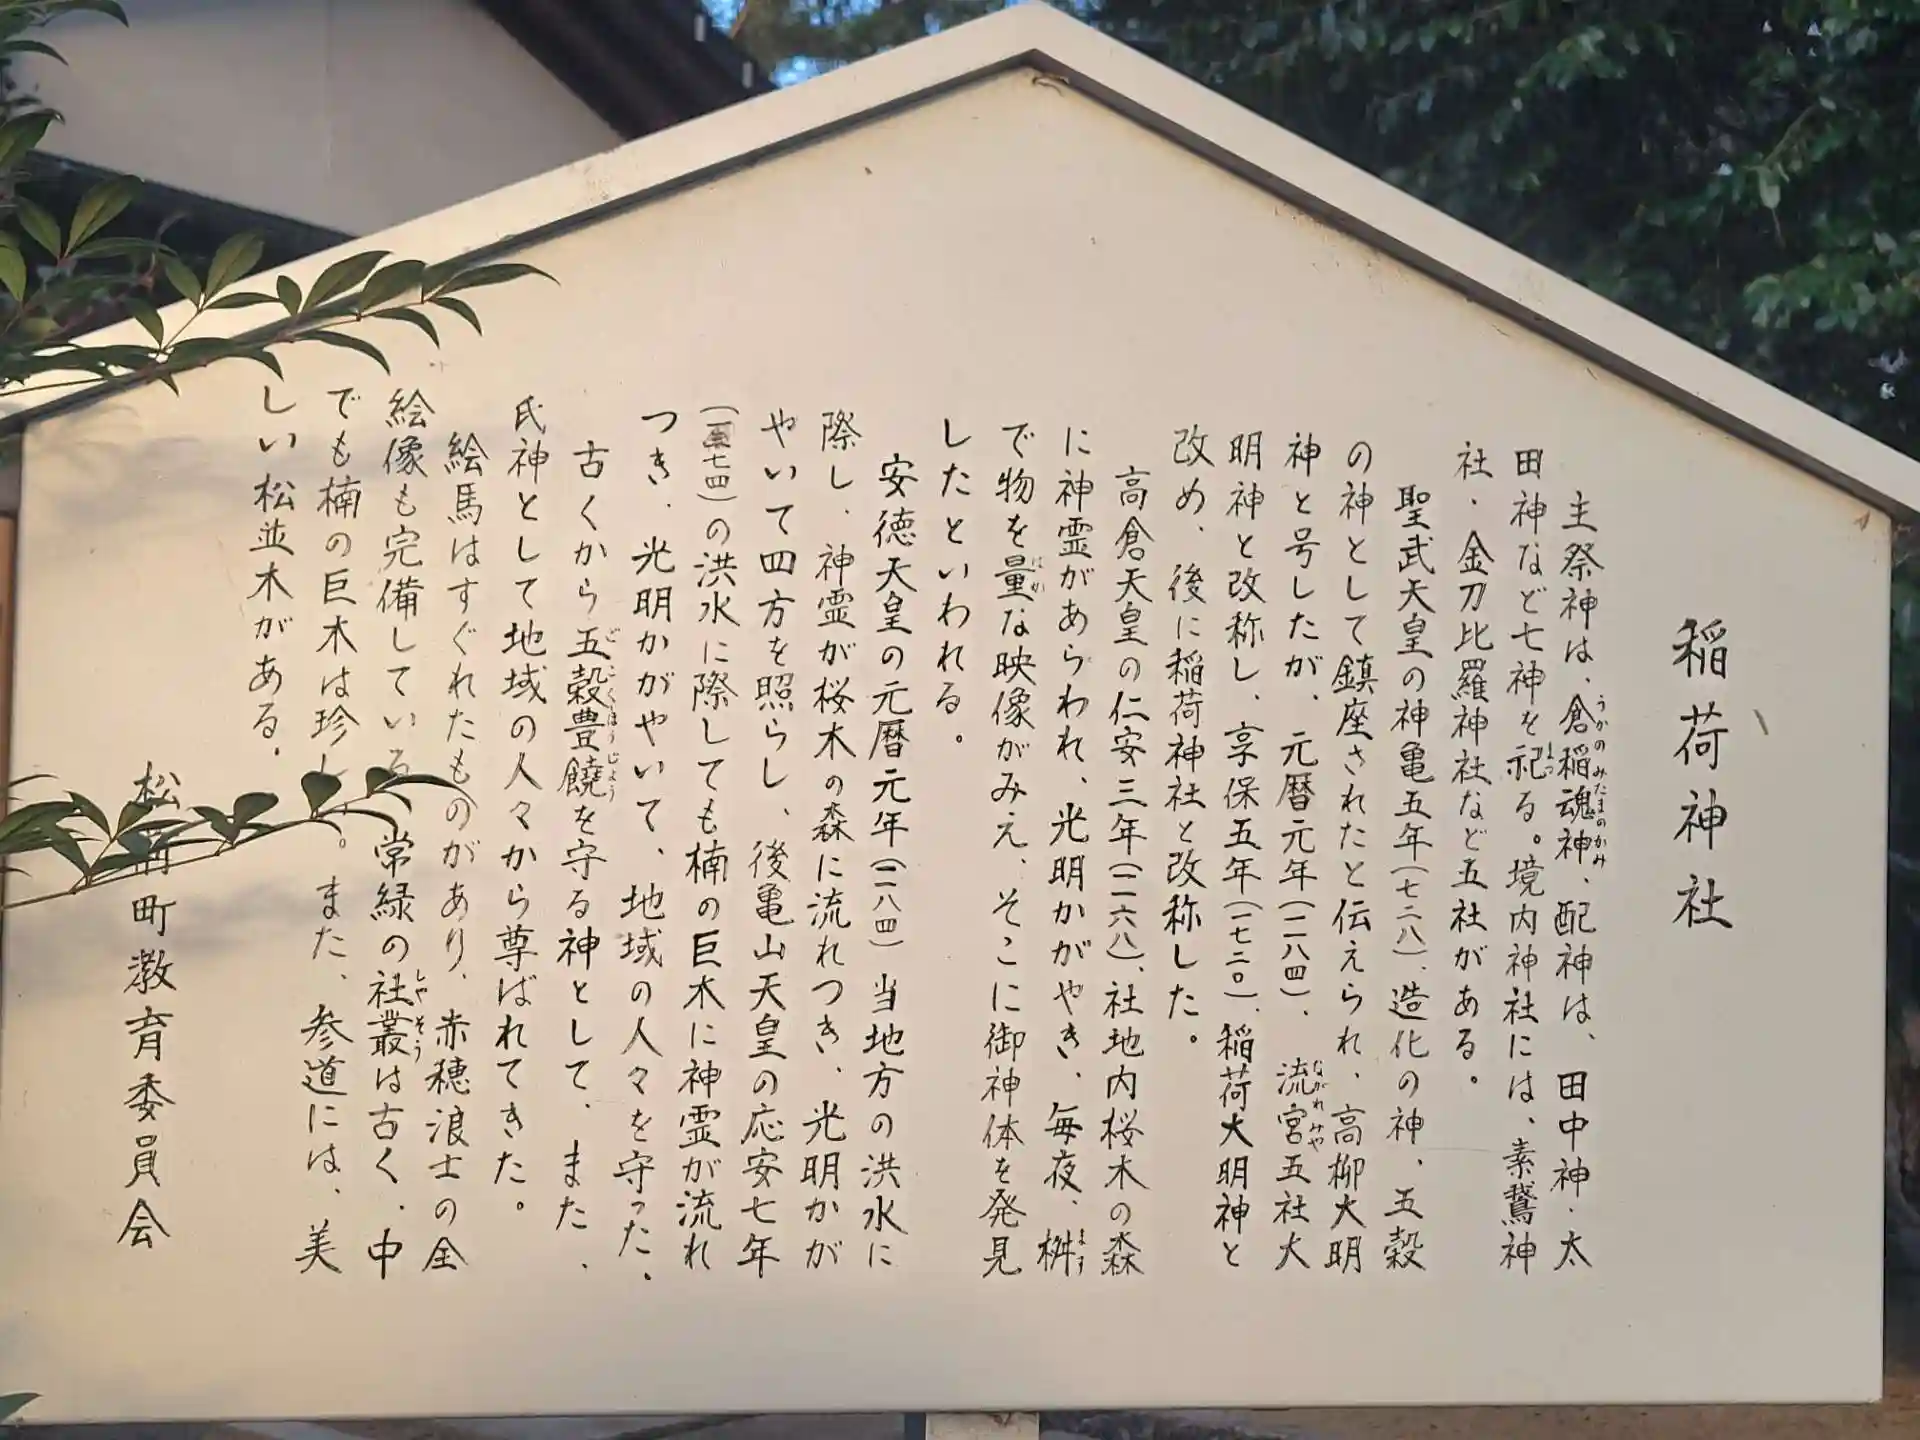 稲荷神社
主祭神は、倉稲魂神、配神は、田中神・太
田神など七神を祀る。境内神社には、素鵞神
社・金刀比羅神社など五社がある。
聖武天皇の神亀五年(七二八)、造化の神、五穀
の神として鎮座されたと伝えられ、高柳大明
神と号したが、元暦元年(一一八四)、流宮五社大
明神と改称し、享保五年(一七二〇)、稲荷大明神と
改め、後に稲荷神社と改称した。
高倉天皇の仁安三年(一一六八)、社地内桜木の森
に神霊があらわれ、光明かがやき、毎夜、桝
で物を量な映像がみえ、そこに御神体を発見
したといわれる。
安徳天皇の元暦元年(一一八四)当地方の洪水に
際し、神霊が桜木の森に流れつき、光明かが
やいて四方を照らし、後亀山天皇の応安七年
(一三七四)の洪水に際しても楠の巨木に神霊が流れ
つき、光明かがやいて、地域の人々を守った。
古くから五穀豊饒を守る神として、また、
氏神として地域の人々から尊ばれてきた。
絵馬はすぐれたものがあり、赤穂浪士の全
絵像も完備している 常緑の社叢は古く、中
でも楠の巨木は珍し。また、参道には、美
しい松並木がある。
松前町教育委員会